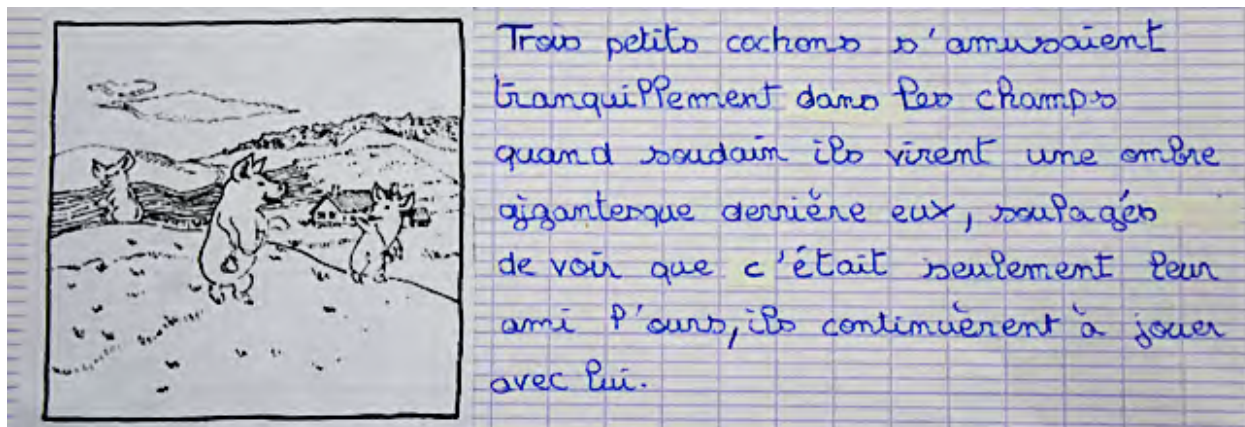 Trois petits cochons s'amusaient
tranquillement dans les champs
quand soudain ils virent une ombre
gigantesque derrière eux, soulagés
de voir que c'était seulement leur
ami l'ours, ils continuèrent à jouer
avec lui.